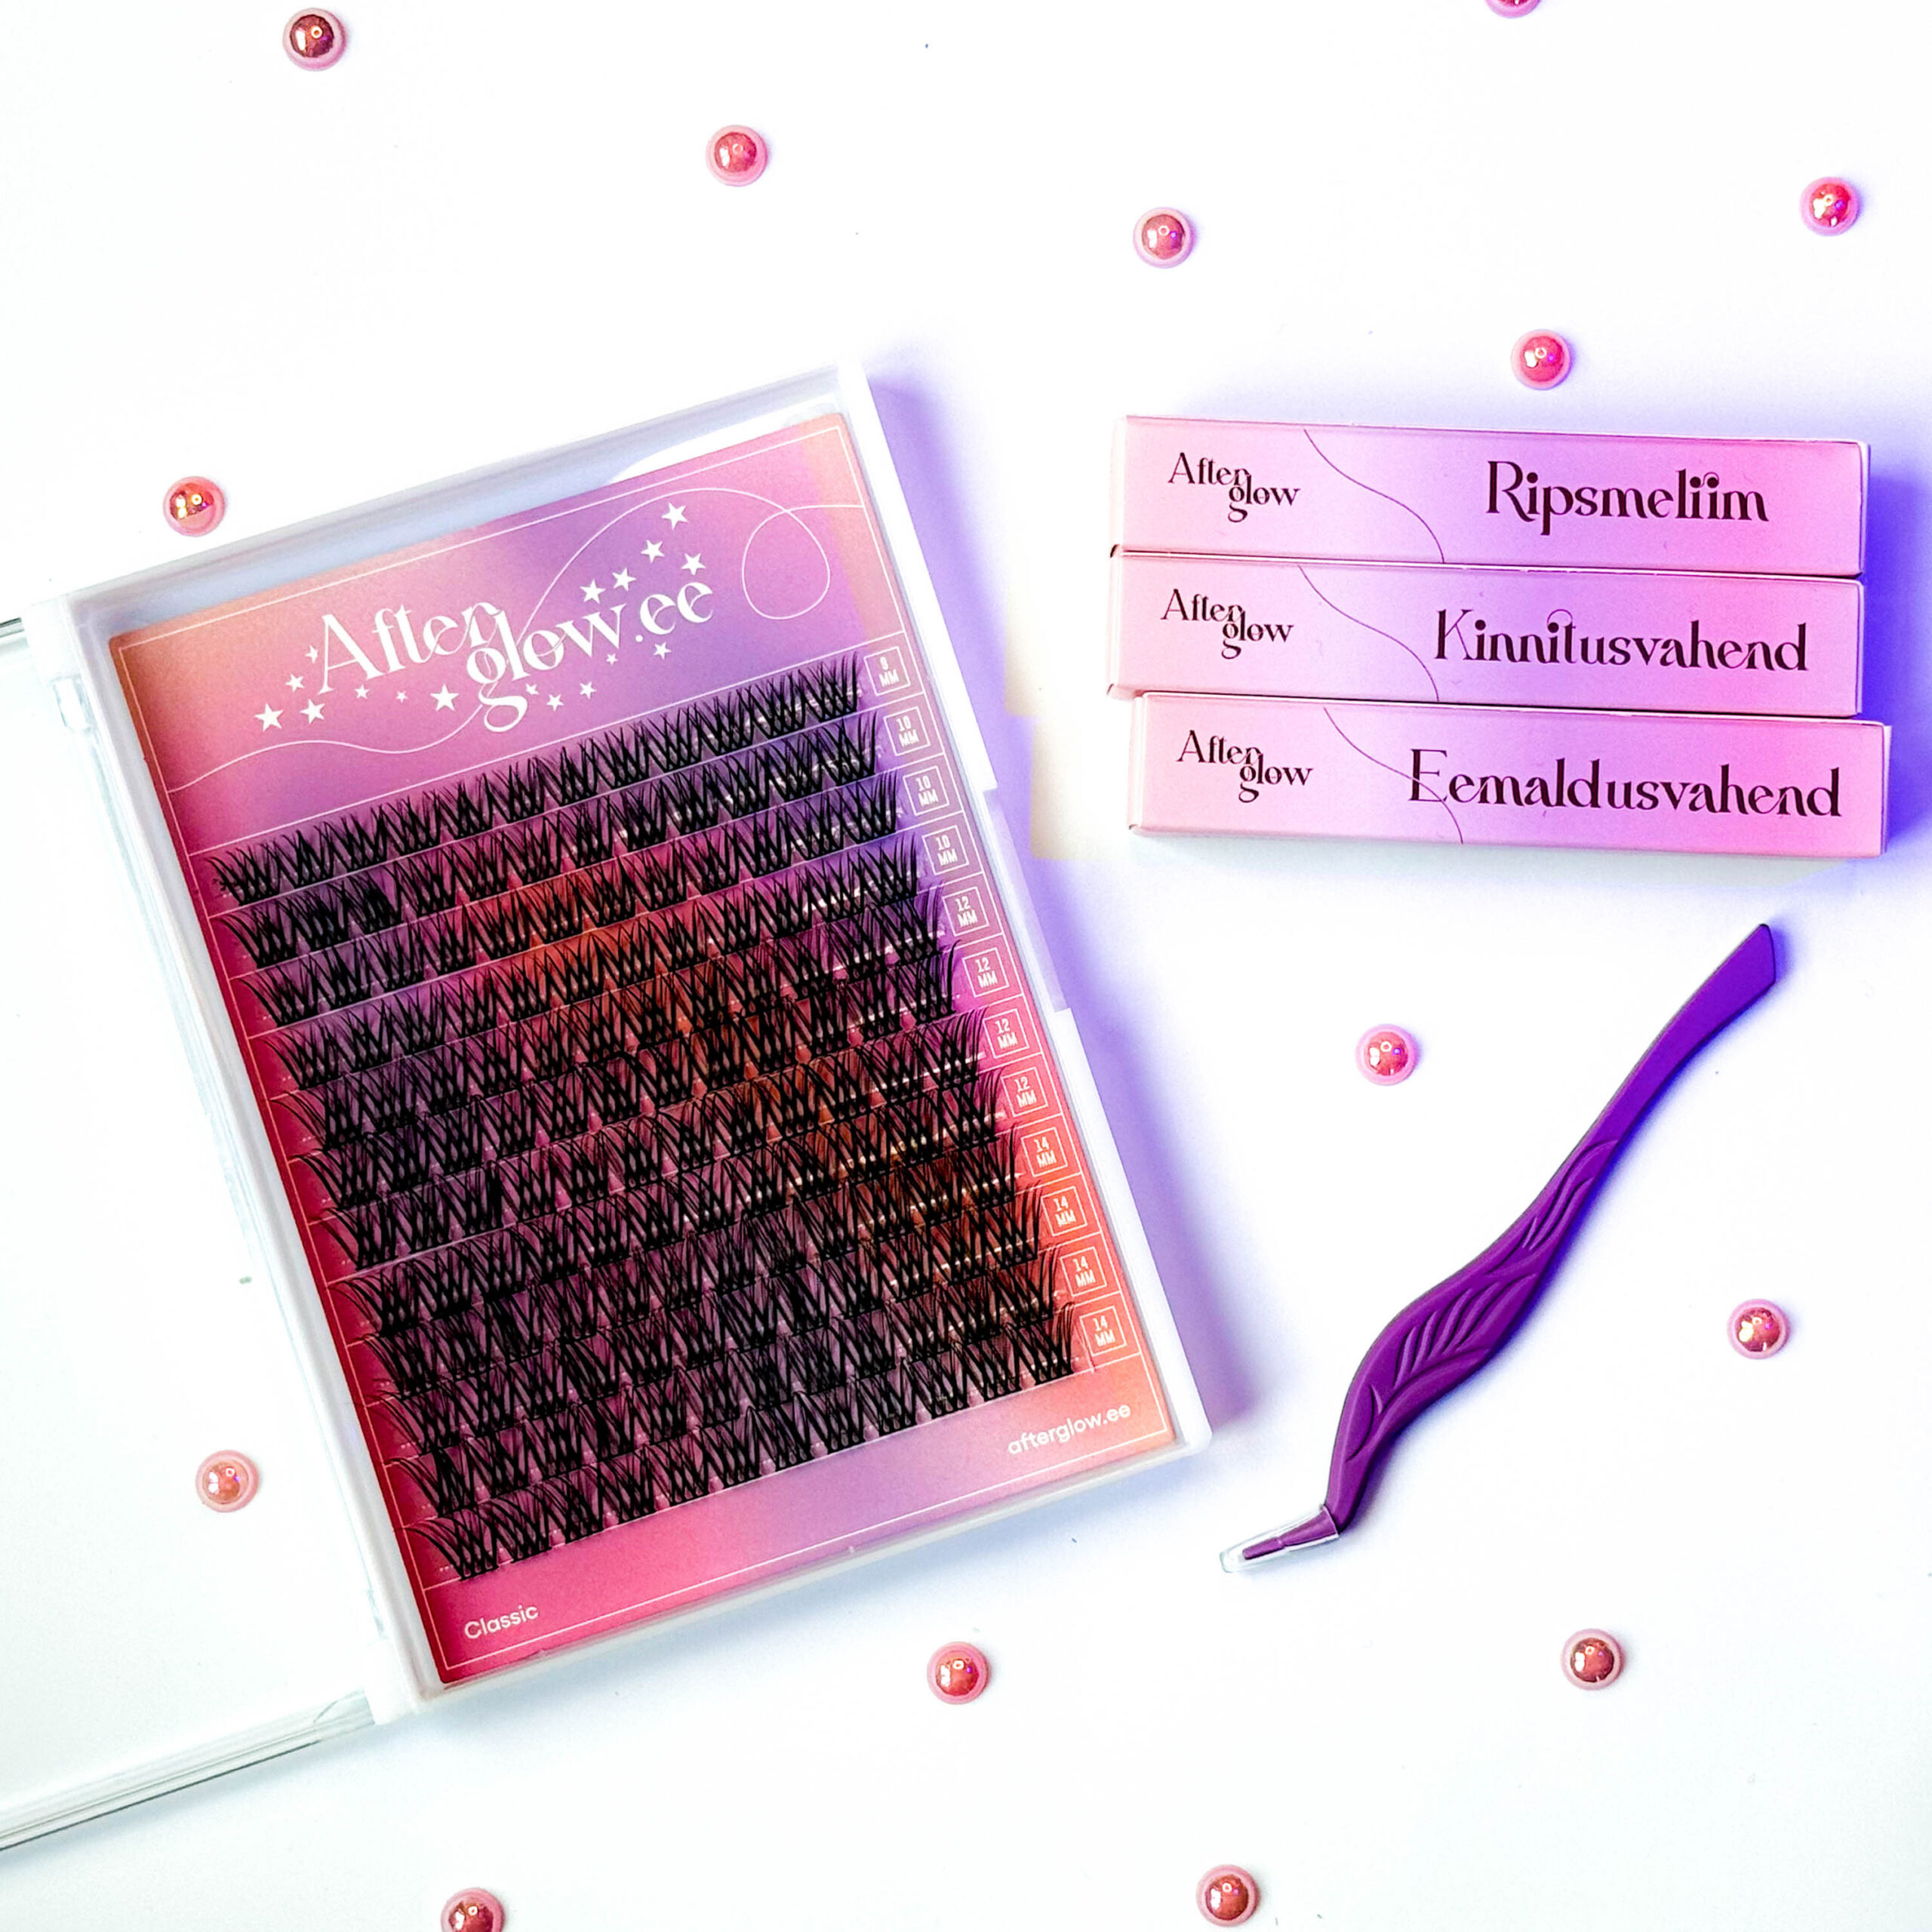 After
glow.ee
8
MM
10
MM
10
MM
10
MM
12
MM
12
MM
12
MM
12
MM
14
MM
14
MM
14
MM
14
MM
afterglow.ee
Classic
After
glow
Ripsmeliim
After
glow
Kinnitusvahend
After
glow
Eemaldusvahend